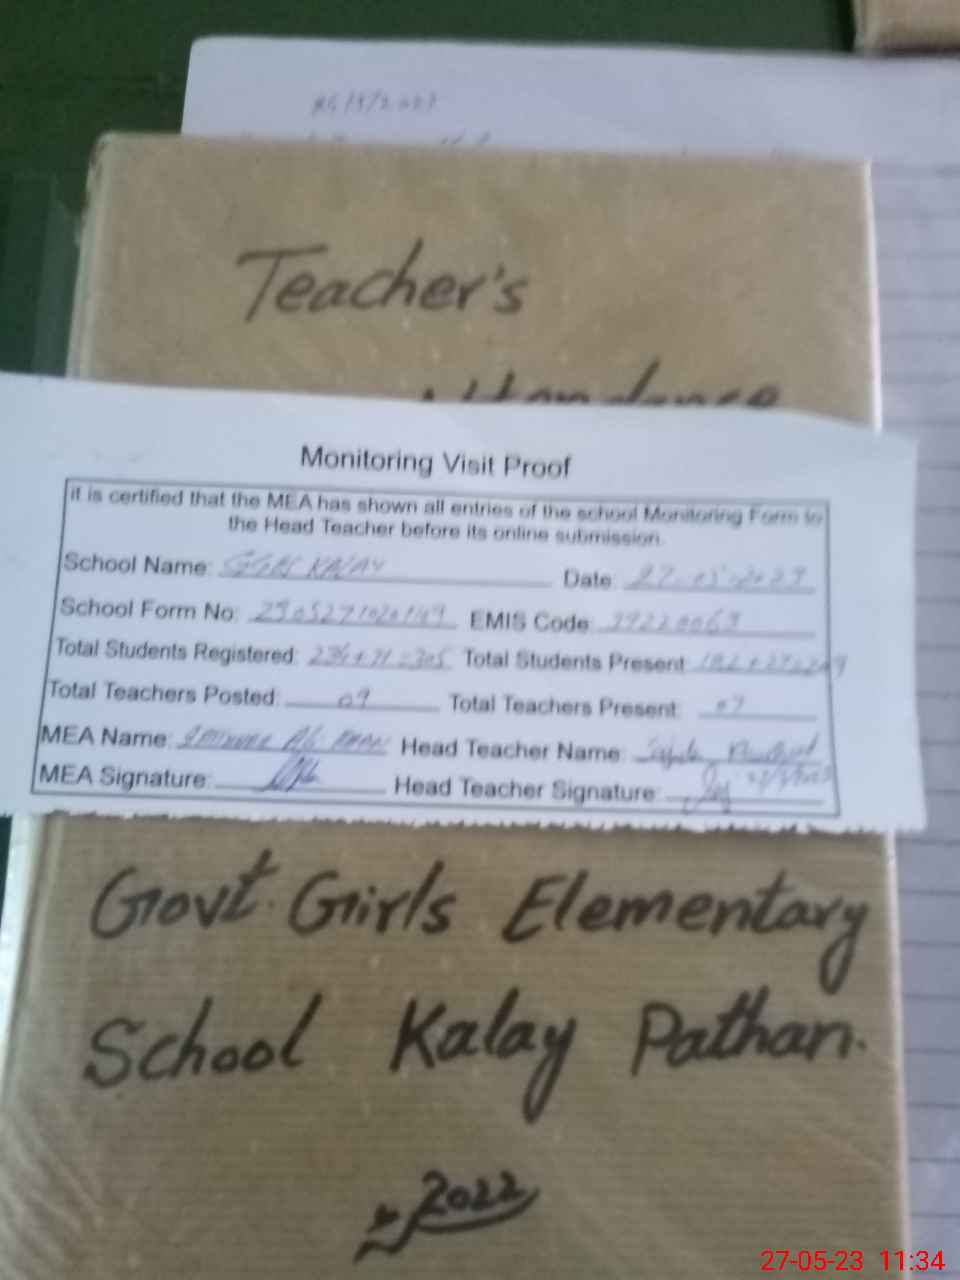 Teacher's
Attendance
Monitoring Visit Proof
it is certified that the MEA has shown all entries of the school Monitoring Form to
the Head Teacher before its online submission.
School Name: GGES KALAY Date: 27-05-2023
School Form No: EMIS Code:
Total Students Registered: 234+71=305 Total Students Present:
Total Teachers Posted: 09 Total Teachers Present: 07
MEA Name: Head Teacher Name:
MEA Signature: Head Teacher Signature:
Govt. Girls Elementary
School Kalay Pathan.
2022
27-05-23 11:34